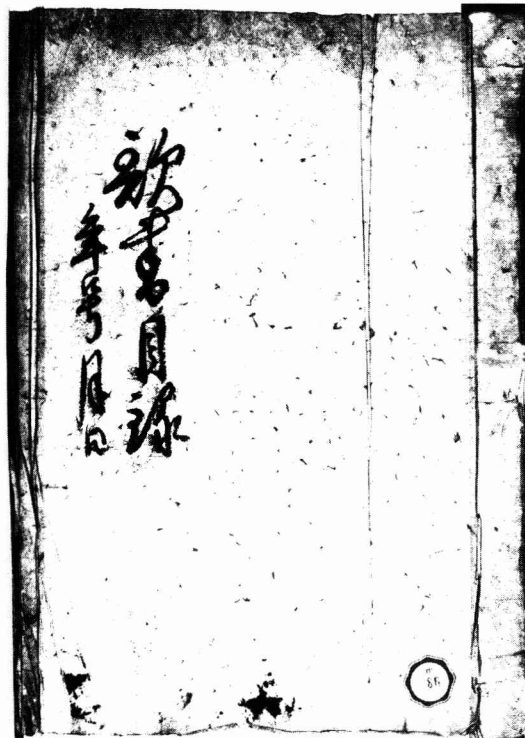 歌書目録
年号月日